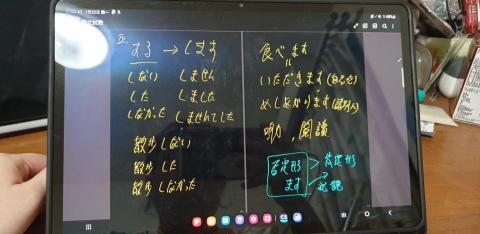 する → します
しない しません
した しました
しなかった しませんでした
散歩しない
散歩した
散歩しなかった
食べます
いただきます
めしあがります
聽力, 閱讀
否定形
ます